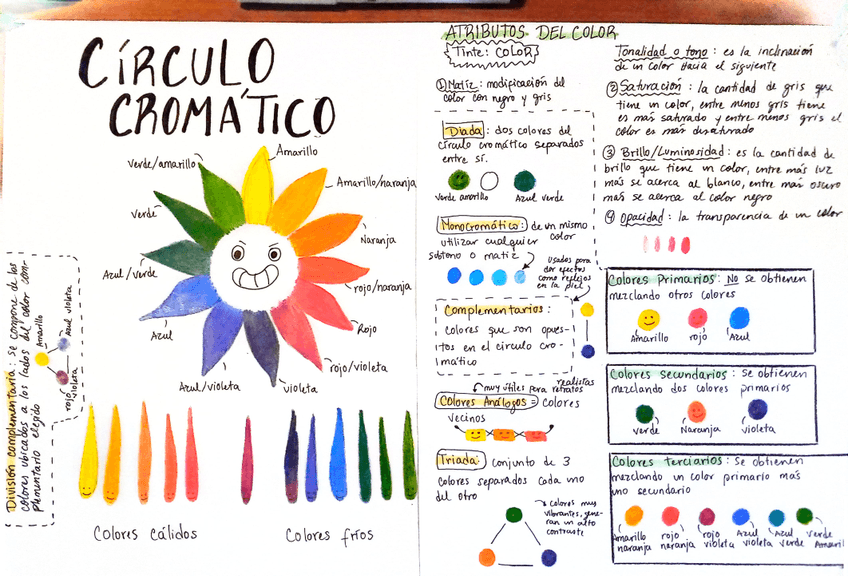 CÍRCULO
CROMÁTICO
Amarillo
Amarillo/naranja
Naranja
rojo/naranja
Rojo
rojo/violeta
violeta
Azul/violeta
Azul
Azul/verde
Verde
verde/amarillo
División complementaria: se compone de los
colores ubicados a los lados del color com-
plementario elegido
Amarillo
Azul violeta
rojo
violeta
Colores cálidos
Colores fríos
ATRIBUTOS DEL COLOR
Tinte: COLOR
① Matiz: modificación del
color con negro y gris
Diada: dos colores del
círculo cromático separados
entre sí.
verde amarillo
Azul verde
Monocromático: de un mismo
color
utilizar cualquier
subtono o matiz
usados para
dar efectos
como reflejos
en la piel
Complementarios:
Colores que son opues-
tos en el círculo cro-
mático
muy útiles para retratos
realistas
Colores Análogos = colores
vecinos
Triada: conjunto de 3
colores separados cada uno
del otro
colores muy
vibrantes, gene-
ran un alto
contraste
Tonalidad o tono: es la inclinación
de un color hacia el siguiente
② Saturación: la cantidad de gris que
tiene un color, entre menos gris tiene
es más saturado y entre menos gris el
color es más desaturado
③ Brillo/Luminosidad: es la cantidad de
brillo que tiene un color, entre más luz
más se acerca al blanco, entre más oscuro
más se acerca al color negro
④ Opacidad: la transparencia de un color
Colores Primarios: NO se obtienen
mezclando otros colores
Amarillo
rojo
Azul
Colores secundarios: se obtienen
mezclando dos colores primarios
verde
Naranja
violeta
Colores terciarios: se obtienen
mezclando un color primario más
uno secundario
Amarillo
naranja
rojo
naranja
rojo
violeta
Azul
violeta
Azul
verde
verde
Amarill